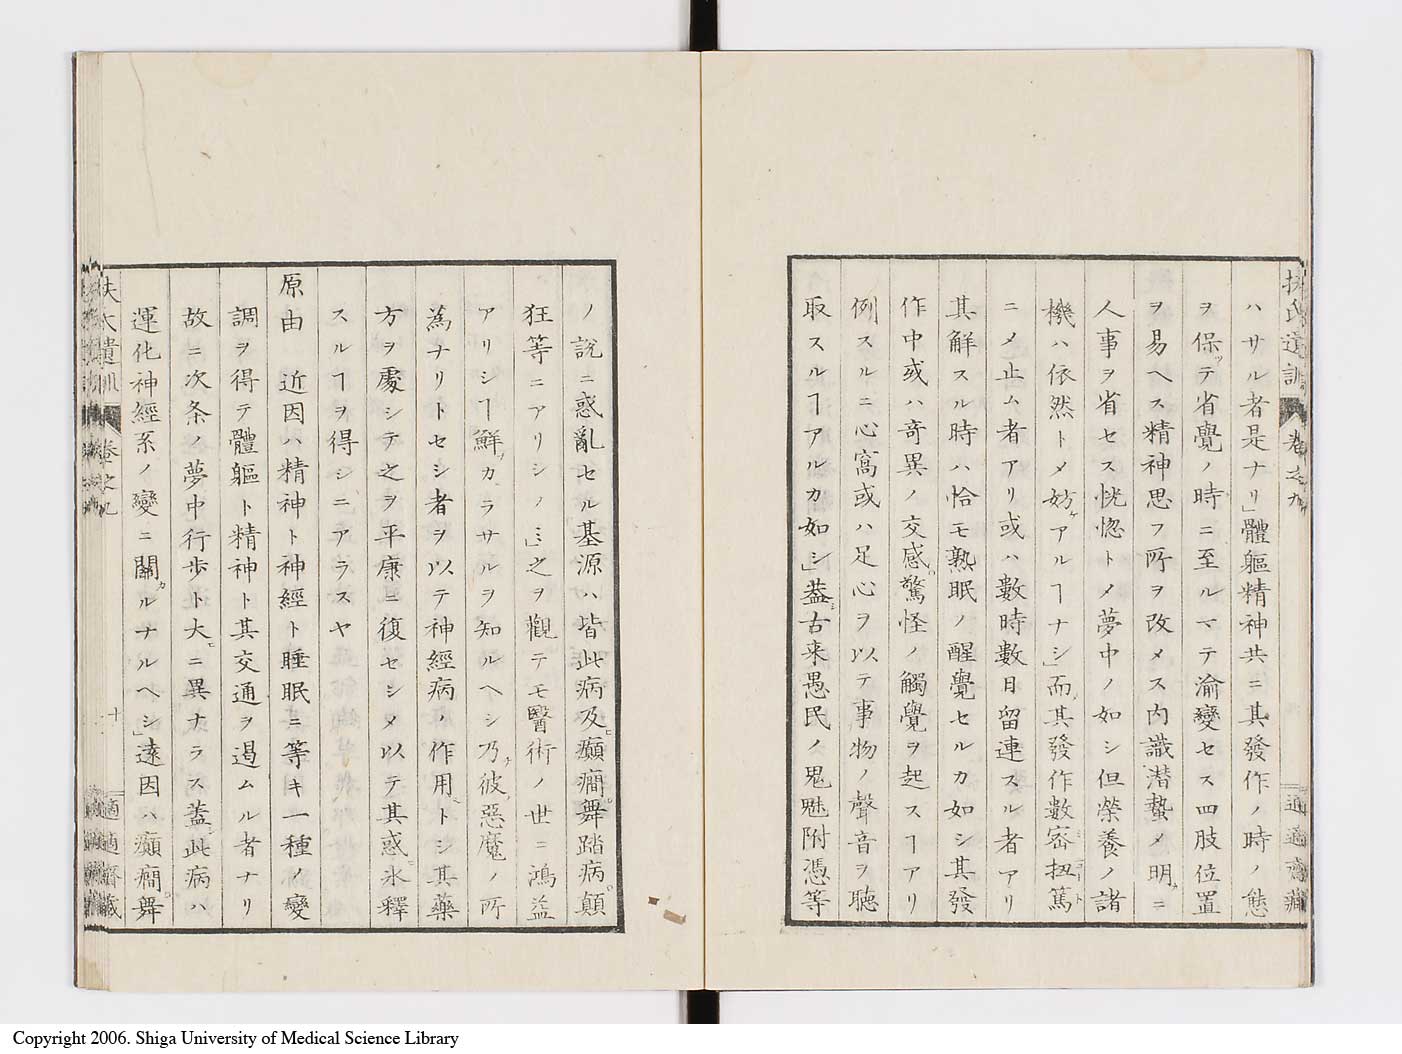 扶氏遺訓 卷之九 適適齋藏
ハサル者是ナリ」體軀精神共ニ其發作ノ時ノ態
ヲ保ッテ省覺ノ時ニ至ルマテ渝變セス四肢位置
ヲ易ヘス精神思フ所ヲ改メス内識潜蟄メ明カニ
人事ヲ省セス恍惚トメ夢中ノ如シ但榮養ノ諸
機ハ依然トメ妨ケアルヿナシ」而其發作數密扭篤
ニメ止ム者アリ或ハ數時數日留連スル者アリ
其解スル時ハ恰モ熟眠ノ醒覺セルカ如シ其發
作中或ハ奇異ノ交感驚怪ノ觸覺ヲ起スヿアリ
例スルニ心窩或ハ足心ヲ以テ事物ノ聲音ヲ聽
取スルヿアルカ如シ」蓋シ古来愚民ノ鬼魅附憑等
ノ説ニ惑亂セル基源ハ皆此病及ヒ癲癇舞踏病顛
狂等ニアリシノミ」之ヲ觀テモ醫術ノ世ニ鴻益
アリシヿ鮮カラサルヲ知ルヘシ乃チ彼惡魔ノ所
為ナリトセシ者ヲ以テ神經病ノ作用トシ其藥
方ヲ處シテ之ヲ平康ニ復セシメ以テ其惑ヒ氷釋
スルヿヲ得シニアラスヤ
原由 近因ハ精神ト神經ト睡眠ニ等キ一種ノ變
調ヲ得テ體軀ト精神ト其交通ヲ遏ムル者ナリ
故ニ次条ノ夢中行歩ト大ヒニ異ナラス蓋シ此病ハ
運化神經系ノ變ニ關カルナルヘシ」遠因ハ癲癇舞
扶氏遺訓 卷之九 十 適適齋藏
Copyright 2006. Shiga University of Medical Science Library